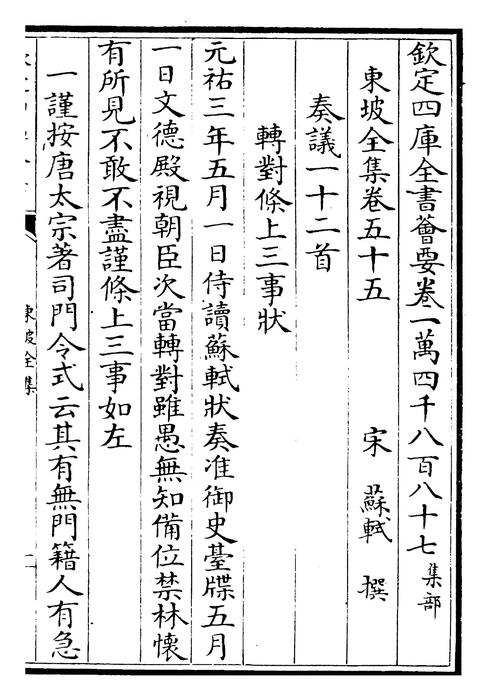 欽定四庫全書薈要卷一萬四千八百八十七 集部
東坡全集卷五十五 宋 蘇軾 撰
奏議一十二首
轉對條上三事狀
元祐三年五月一日侍讀蘇軾狀奏准御史臺牒五月
一日文德殿視朝臣次當轉對雖愚無知備位禁林懷
有所見不敢不盡謹條上三事如左
一謹按唐太宗著司門令式云其有無門籍人有急
東坡全集